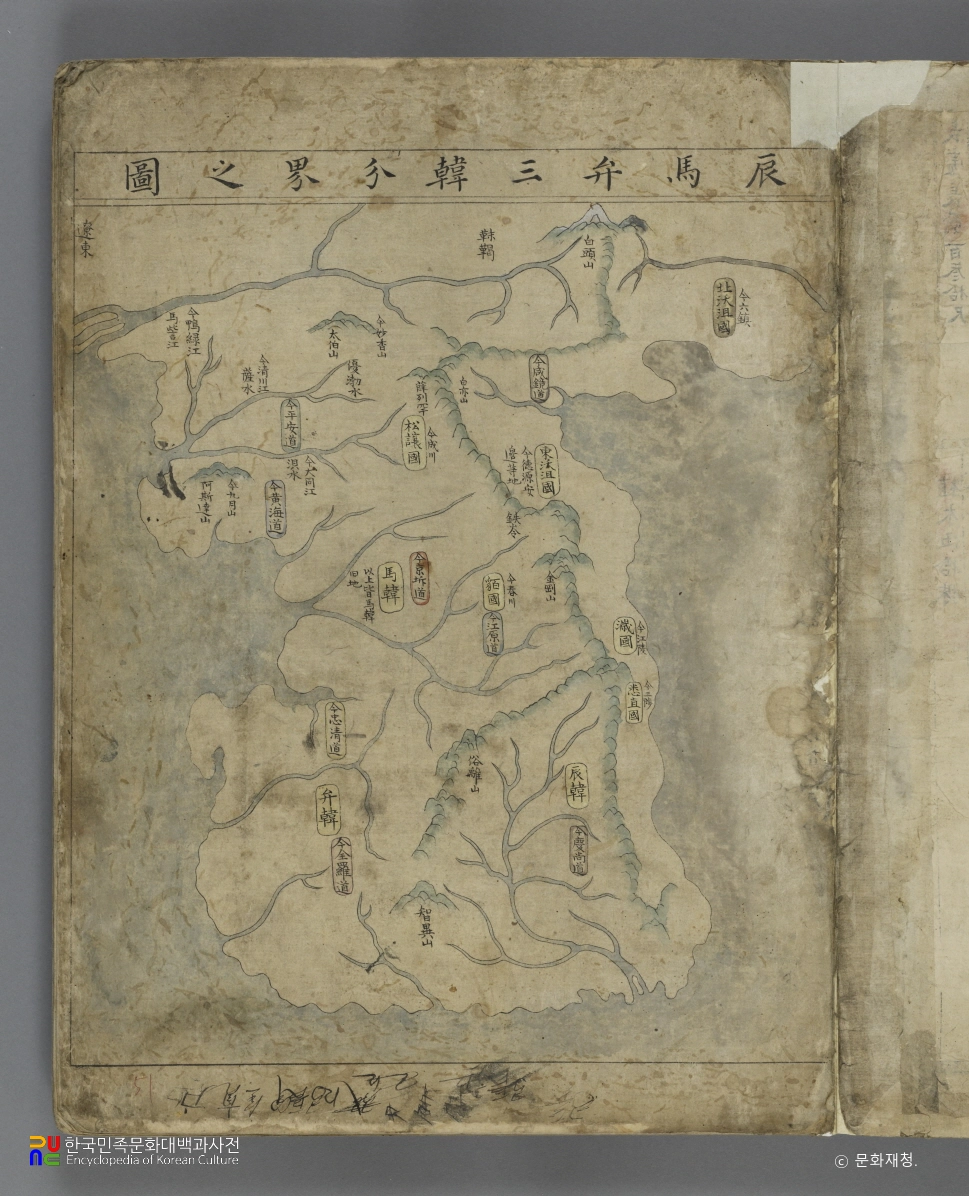 辰馬弁三韓分界之圖
遼東
靺鞨
白頭山
北沃沮國
今六鎮
今鴨緑江
馬訾江
太伯山
今妙香山
今清川江
薩水
優渤水
今咸鏡道
今平安道
松讓國
今成川
東沃沮國
今德源安
邊等地
今大同江
浿水
今九月山
阿斯達山
今黃海道
鉄岺
馬韓
以上皆馬韓
旧地
貊國
今春川
今江原道
金剛山
濊國
今江陵
悉直國
今三陟
今忠清道
弁韓
今全羅道
俗離山
辰韓
今慶尚道
智異山
한국민족문화대백과사전
Encyclopedia of Korean Culture
ⓒ 문화재청.